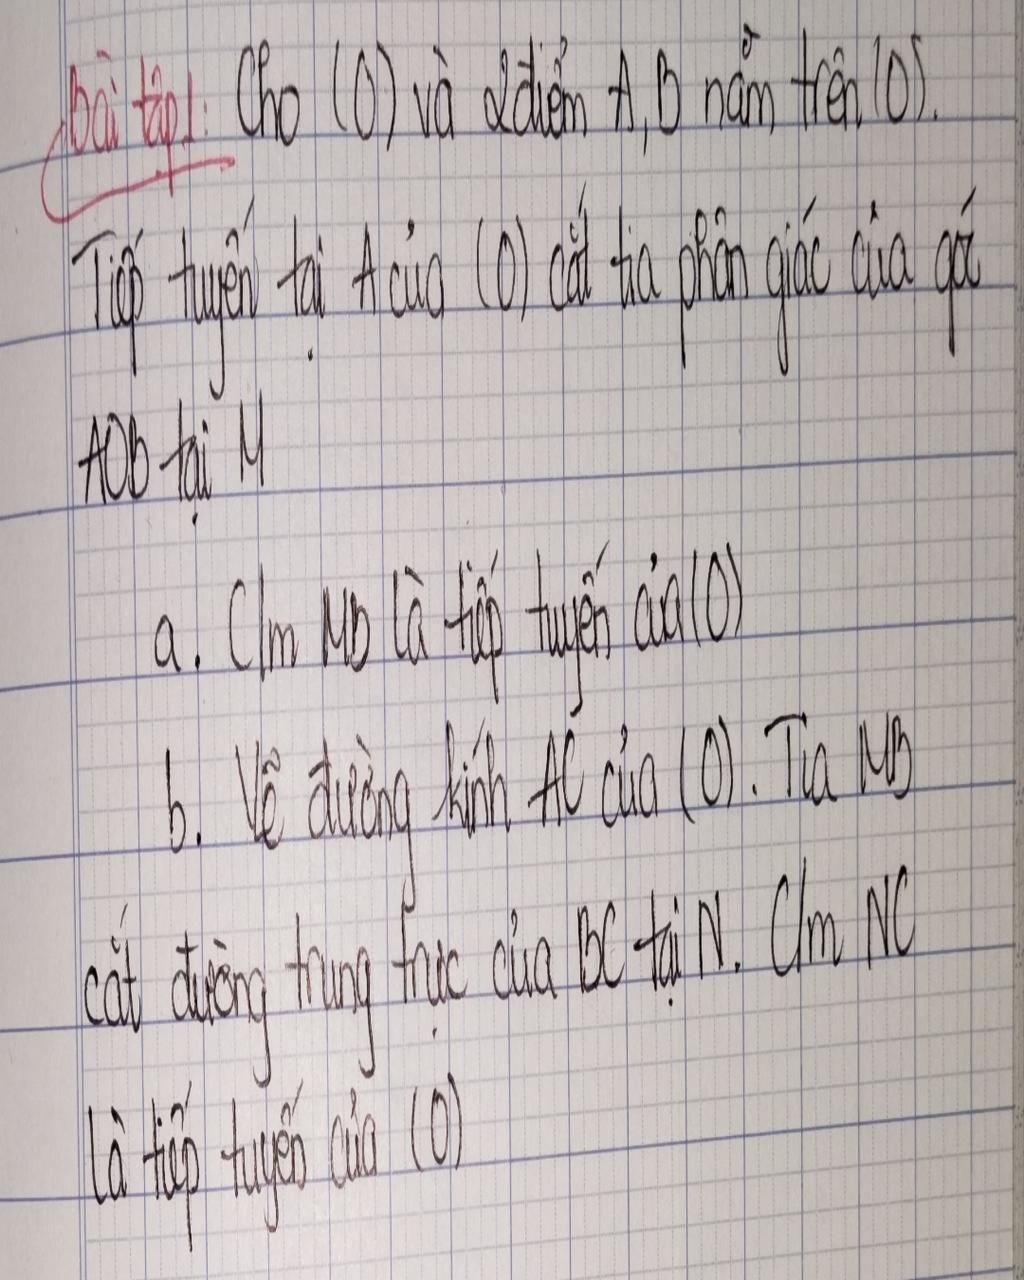 Bài tập1: Cho (O) và 2điểm A,B nằm trên (O).
Tiếp tuyến tại A của (O) cắt tia phân giác của góc
AOB tại M
a. C/m MB là tiếp tuyến của (O)
b. Vẽ đường kính AC của (O). Tia MB
cắt đường trung trực của BC tại N. C/m NC
là tiếp tuyến của (O)